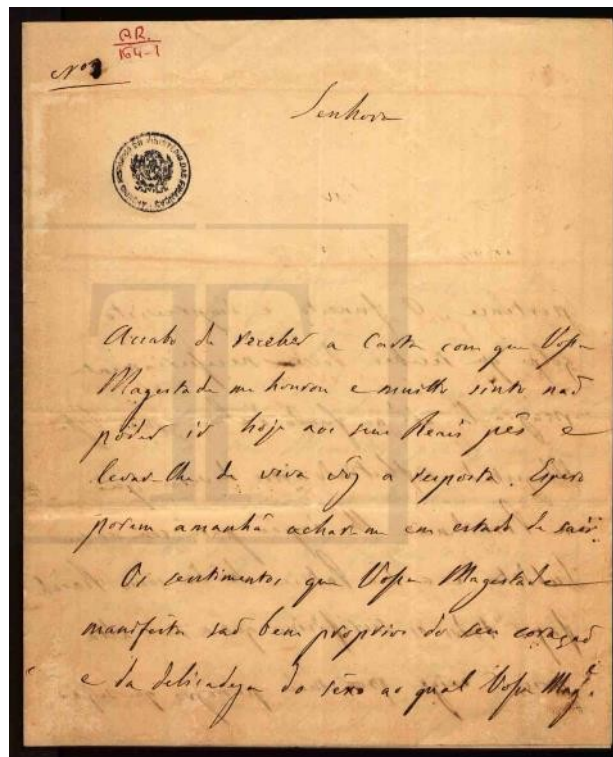 AR.
164-1
Nº 1
Senhora
ARQUIVO HISTÓRICO DO MINISTÉRIO DAS FINANÇAS
Accabo de receber a Carta com que Vossa
Magestade me honrou e muitto sinto naõ
poder ir hoje aos seus Reaes pés e
levar-lhe de viva vóz a resposta. Espero
porem amanhã achar-me em estado de sair.
Os sentimentos que Vossa Magestade
manifesta saõ bem proprios do seu coraçaõ
e da delicadeza do sexo ao qual Vossa Mag.e